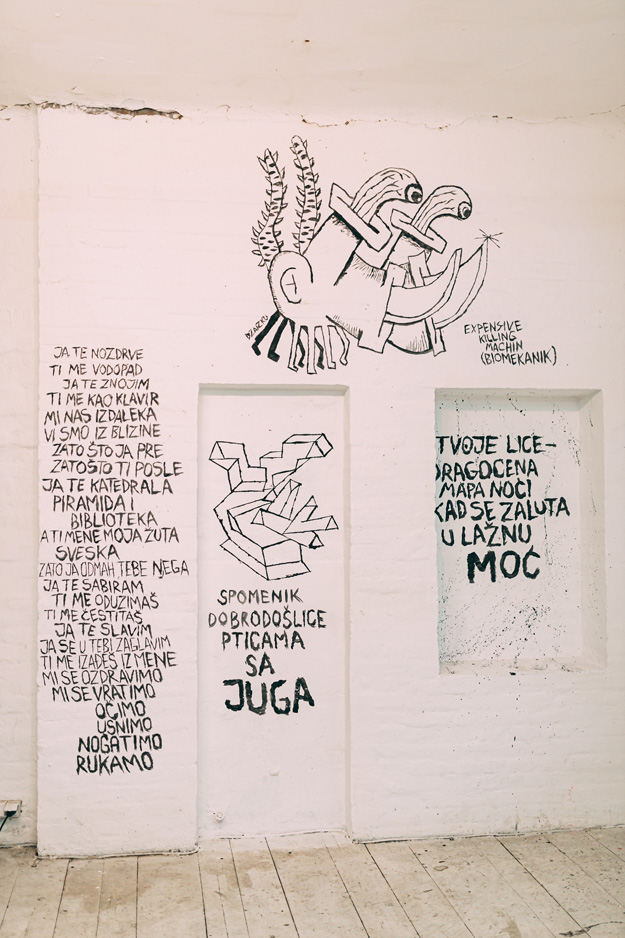 JA TE NOZDRVE
TI ME VODOPAD
JA TE ZNOJIM
TI ME KAO KLAVIR
MI NAS IZDALEKA
VI SMO IZ BLIZINE
ZATO ŠTO JA PRE
ZATOŠTO TI POSLE
JA TE KATEDRALA
PIRAMIDA I
BIBLIOTEKA
A TI MENE MOJA ŽUTA
SVESKA
ZATO JA ODMAH TEBE NJEGA
JA TE SABIRAM
TI ME ODUZIMAŠ
TI ME ČESTITAŠ
JA TE SLAVIM
JA SE U TEBI ZAGLAVIM
TI ME IZAĐEŠ IZ MENE
MI SE OZDRAVIMO
MI SE VRATIMO
OČIMO
USNIMO
NOGATIMO
RUKAMO
EXPENSIVE
KILLING
MACHIN
(BIOMEKANIK)
SPOMENIK
DOBRODOŠLICE
PTICAMA
SA
JUGA
TVOJE LICE-
DRAGOCENA
MAPA NOĆI
KAD SE ZALUTA
U LAŽNU
MOĆ